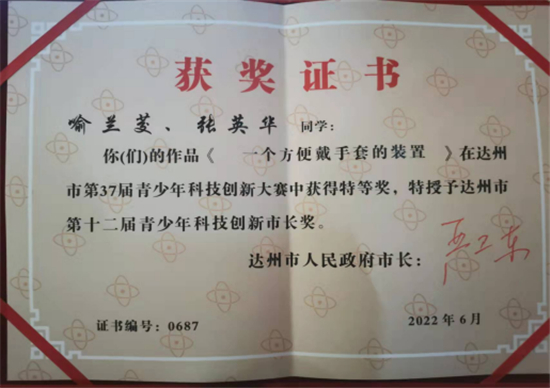 获奖证书
喻兰菱、张英华 同学:
你(们)的作品《 一个方便戴手套的装置 》在达州
市第37届青少年科技创新大赛中获得特等奖，特授予达州市
第十二届青少年科技创新市长奖。
达州市人民政府市长:
证书编号: 0687
2022年6月